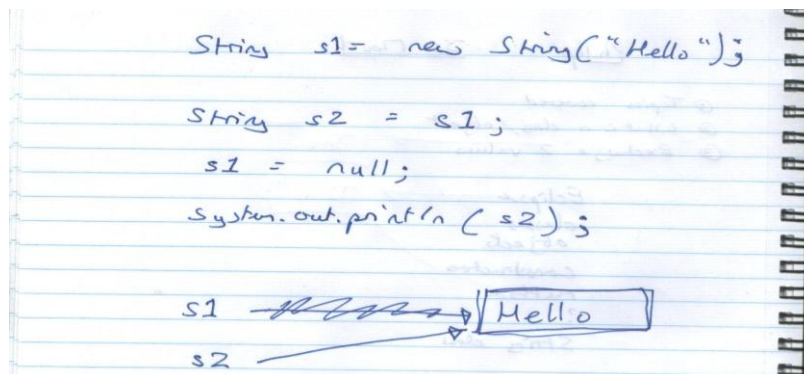 String s1 = new String("Hello");
String s2 = s1;
s1 = null;
System.out.println(s2);
s1 Hello
s2